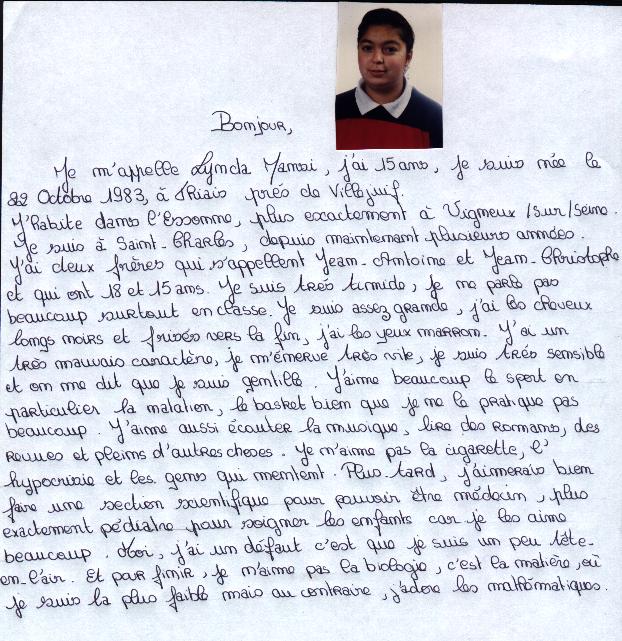 Bonjour,
Je m'appelle Lynda Mamai, j'ai 15 ans, je suis née le
22 Octobre 1983, à Thiais près de Villejuif.
J'Habite dans l'Essonne, plus exactement à Vigneux/sur/Seine.
Je suis à Saint-Charles, depuis maintenant plusieurs années.
J'ai deux frères qui s'appellent Jean-Antoine et Jean-Christophe
et qui ont 18 et 15 ans. Je suis très timide, je ne parle pas
beaucoup surtout en classe. Je suis assez grande, j'ai les cheveux
longs noirs et frisés vers la fin, j'ai les yeux marron. J'ai un
très mauvais caractère, je m'énerve très vite, je suis très sensible
et on me dit que je suis gentille. J'aime beaucoup le sport en
particulier la natation, le basket bien que je ne le pratique pas
beaucoup. J'aime aussi écouter la musique, lire des Romans, des
Revues et pleins d'autres choses. Je n'aime pas la cigarette, l'
hypocrisie et les gens qui mentent. Plus tard, j'aimerais bien
faire une section scientifique pour pouvoir être médecin, plus
exactement pédiatre pour soigner les enfants car je les aime
beaucoup. Moi, j'ai un défaut c'est que je suis un peu tête-
en-l'air. Et pour finir, je n'aime pas la biologie, c'est la matière, où
je suis la plus faible mais au contraire, j'adore les mathématiques.